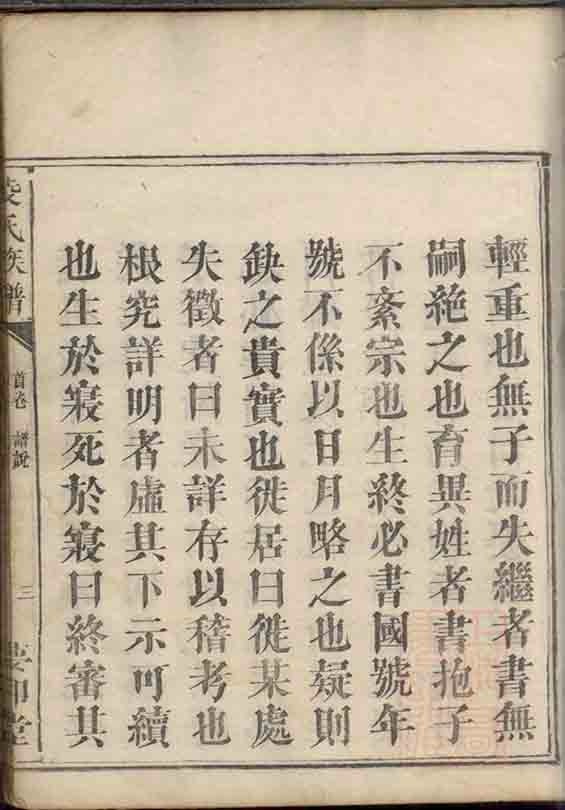 輕重也無子而失繼者書無
嗣絶之也育異姓者書抱子
不紊宗也生終必書國號年
號不係以日月略之也疑則
缺之貴實也徙居曰徙某處
失徵者曰未詳存以稽考也
根究詳明者虛其下示可續
也生於寢死於寢曰終審其
氏族譜
首卷 譜說
三
堂